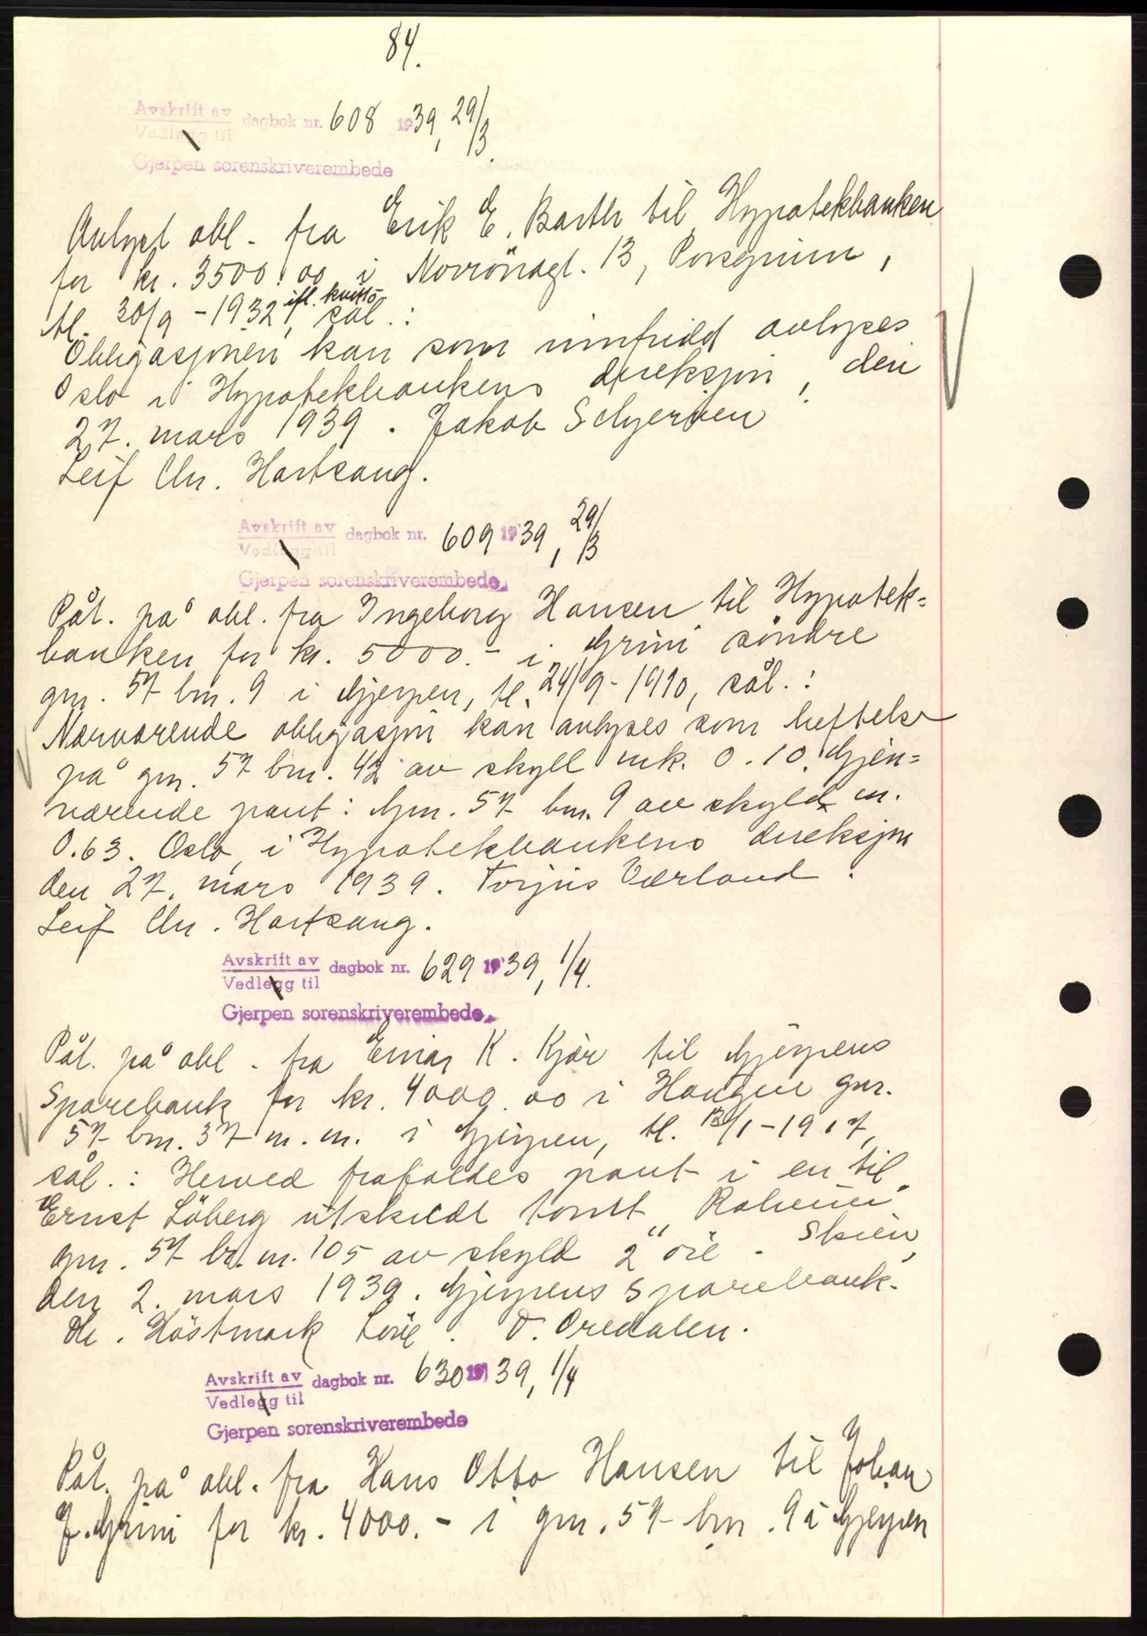 84.
Avskrift av
Vedlegg til dagbok nr. 608 1939, 29/3.
Gjerpen sorenskriverembede
Avlyst obl. fra Erik E. Barth til Hypotekbanken
for kr. 3500.00 i Norrönagt. 13, Porsgrunn,
tl. 30/9 - 1932, ifl. kvitto sål.:
Obligasjonen kan som innfridd avlyses
Oslo i Hypotekbankens direksjon, den
27. mars 1939. Jakob Schjerven
Leif Chr. Hartsang.
Avskrift av
Vedlegg til dagbok nr. 609 1939, 29/3
Gjerpen sorenskriverembede
Påt. på obl. fra Ingeborg Hansen til Hypotek=
banken for kr. 5000.- i Grini söndre
gnr. 57 bnr. 9 i Gjerpen, tl. 24/9 - 1910, sål.:
Nærværende obligasjon kan avlyses som heftelse
på gnr. 57 bnr. 42 av skyll mk. 0.10. Gjen=
værende pant: Gnr. 57 bnr. 9 av skyld m.
0.63. Oslo, i Hypotekbankens direksjon
den 27. mars 1939. Torjus Værland.
Leif Chr. Hartsang.
Avskrift av
Vedlegg til dagbok nr. 629 1939, 1/4.
Gjerpen sorenskriverembede
Påt. på obl. fra Einar K. Kjær til Gjerpens
Sparebank for kr. 4000.00 i Haugen gnr.
57 bnr. 37 m.m. i Gjerpen, tl. 13/1 - 1917,
sål.: Herved frafaldes pant i en til
Ernst Löberg utskildt tomt "Roheim"
gnr. 57 br.n. 105 av skyld 2 öre. Skien,
den 2. mars 1939. Gjerpens Sparebank.
Hr. Höstmark Lorie. O. Oredalen.
Avskrift av
Vedlegg til dagbok nr. 630 1939, 1/4
Gjerpen sorenskriverembede
Påt. på obl. fra Hans Otto Hansen til Johan
J. Grini for kr. 4000.- i gnr. 57 bnr. 9 i Gjerpen